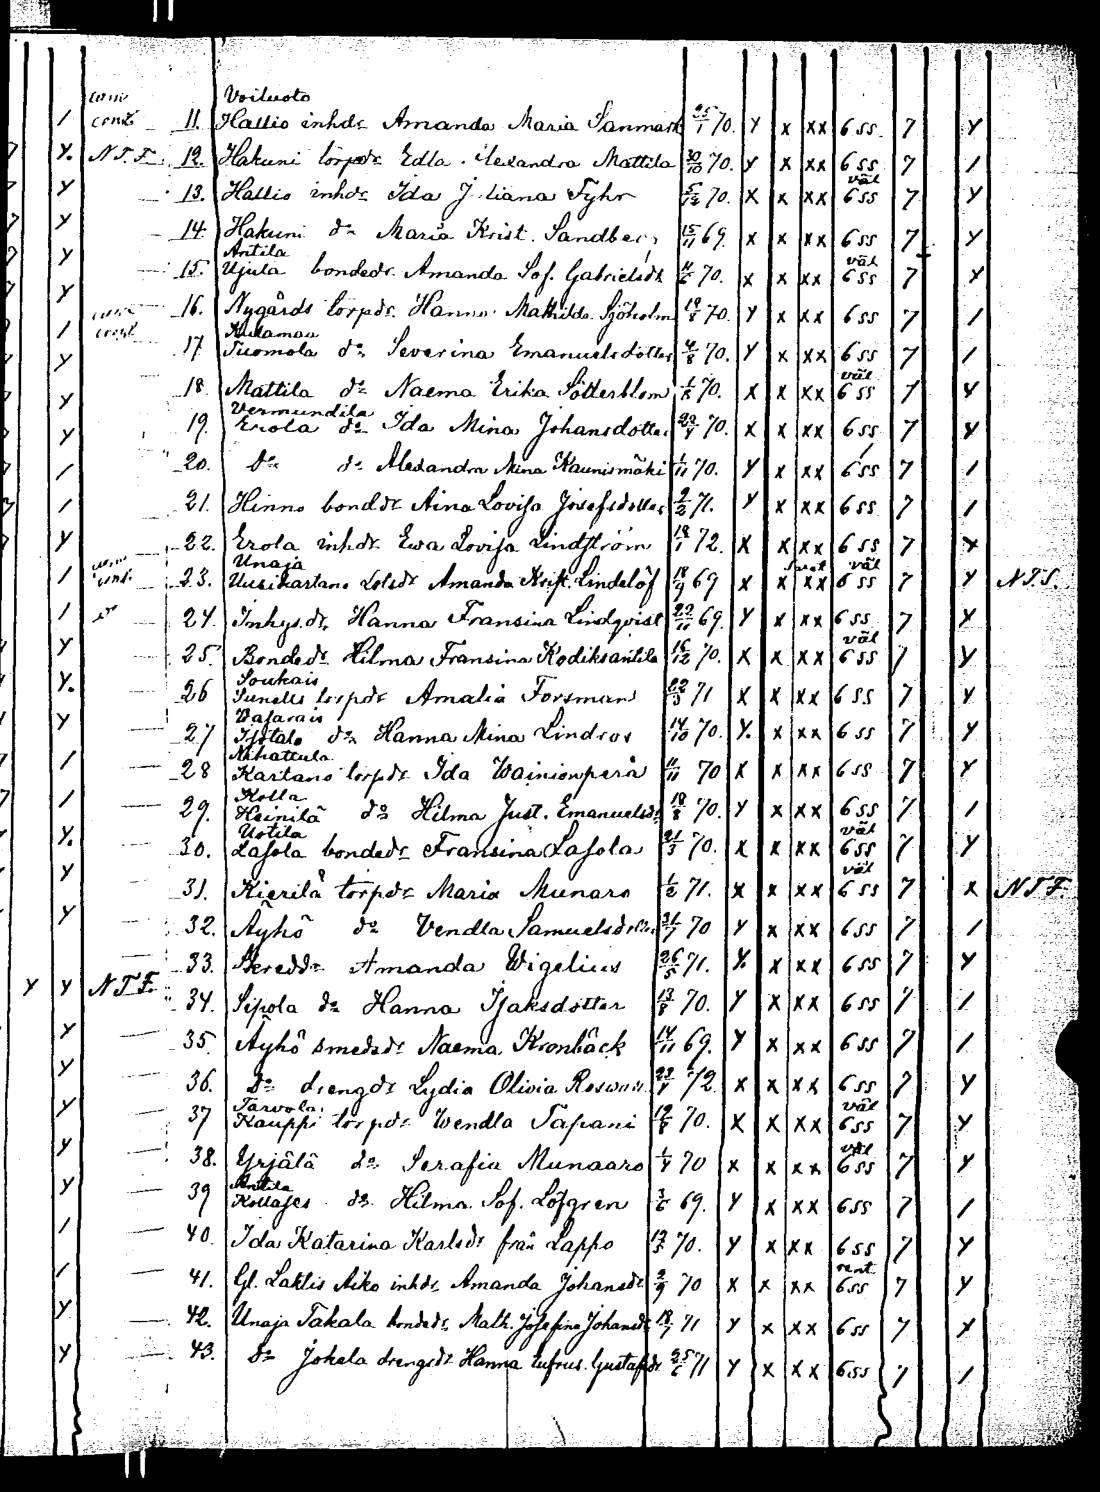 Voiluoto
11. Hallio inhdr Amanda Maria Sanmark 25/1 70. y x xx 6 ss 7 y
y. N.T.F. 12. Hakuni torpdr Edla Alexandra Mattila 30/10 70. y x xx 6 ss 7 /
väl
y 13. Hallio inhdr Ida Juliana Fyhr 5/12 70. x x xx 6 ss 7 y
y 14. Hakuni do Maria Krist. Sandberg 15/11 69. x x xx 6 ss 7 y
Antila väl
y 15. Ujula bondedr. Amanda Sof. Gabrielsdr 11/6 70. x x xx 6 ss 7 x
y 16. Nygårds torpdr. Hanna Mathilda Sjöholm 19/8 70. y x xx 6 ss 7 /
/ 17 Tuomola do Severina Emanuelsdotter 4/8 70. y x xx 6 ss 7 /
väl
y 18. Mattila do Naema Erika Sötterblom 1/5 70. x x xx 6 ss 7 y
Vermundila
y 19. Erola do Ida Mina Johansdotter 70. x x xx 6 ss 7 y
y 20. do do Alexandra Mina Kaunismäki 1/11 70. y x xx 6 ss 7 /
/ 21. Hinno bonddr Aina Lovisa Josefsdotter 2/2 71. y x xx 6 ss 7 /
/ 22. Erola inhdr. Ewa Lovisa Lindström 19/1 72. x x xx 6 ss 7 x
Unaja svat väl
y 23. Uusikartano Lotsdr Amanda Krist. Lindelöf 18/9 69 x x xx 6 ss 7 y N.T.S.
/ do 24. Inhys.dr. Hanna Fransina Lindqvist 23/11 69. y x xx 6 ss 7 x
väl
/ 25. Bondedr Hilma Fransina Kodiksantila 16/12 70. x x xx 6 ss 7 y
Soukais
y 26 Sunells torpdr Amalia Forsman 22/3 71 x x xx 6 ss 7 y
Vasarais
y. 27 Isotalo do Hanna Mina Lindros 14/10 70. y. x xx 6 ss 7 y
Nihattula
y 28 Kartano torpdr Ida Wainionperä 11/11 70 x x xx 6 ss 7 y
Kolla
/ 29. Heinilä do Hilma Just. Emanuelsdr 18/8 70. y x xx 6 ss 7 /
Uotila väl
/ 30. Lasola bondedr Fransina Lasola 21/3 70. x x xx 6 ss 7 y
väl
y. 31. Kierilä torpdr Maria Munaro 1/2 71. x x xx 6 ss 7 x N.T.F.
y 32. Äyhö do Vendla Samuelsdotter 31/7 70 y x xx 6 ss 7 /
y 33. Amanda Wigelius 26/5 71. y. x xx 6 ss 7 y
y y N.T.F. 34. Sipola do Hanna Isaksdotter 13/8 70. y x xx 6 ss 7 /
35. Äyhö smedsdr Naema Kronbäck 14/11 69. y x xx 6 ss 7 /
y 36. do drengdr Lydia Olivia Roswall 72. x x xx 6 ss 7 y
Tarvola väl
y 37 Kauppi torpdr Wendla Tapani 19/8 70. x x xx 6 ss 7 y
väl
y 38. Yrjälä do Serafia Munaaro 70 x x xx 6 ss 7 y
Antila
y 39 Kollases do Hilma Sof. Löfgren 3/6 69. y x xx 6 ss 7 /
y 40. Ida Katarina Karlsdr från Lappo 70. y x xx 6 ss 7 y
/ 41. Gl. Laktis Aiko inhdr Amanda Johansdr 2/9 70 x x xx 6 ss 7 y
/ 42. Unaja Takala bondedr Math. Josefina Johansdr 18/7 71 y x xx 6 ss 7 y
y 43. do Jokela drengsdr Hanna Eufros. Gustafsdr 25/6 71 y x xx 6 ss 7 /